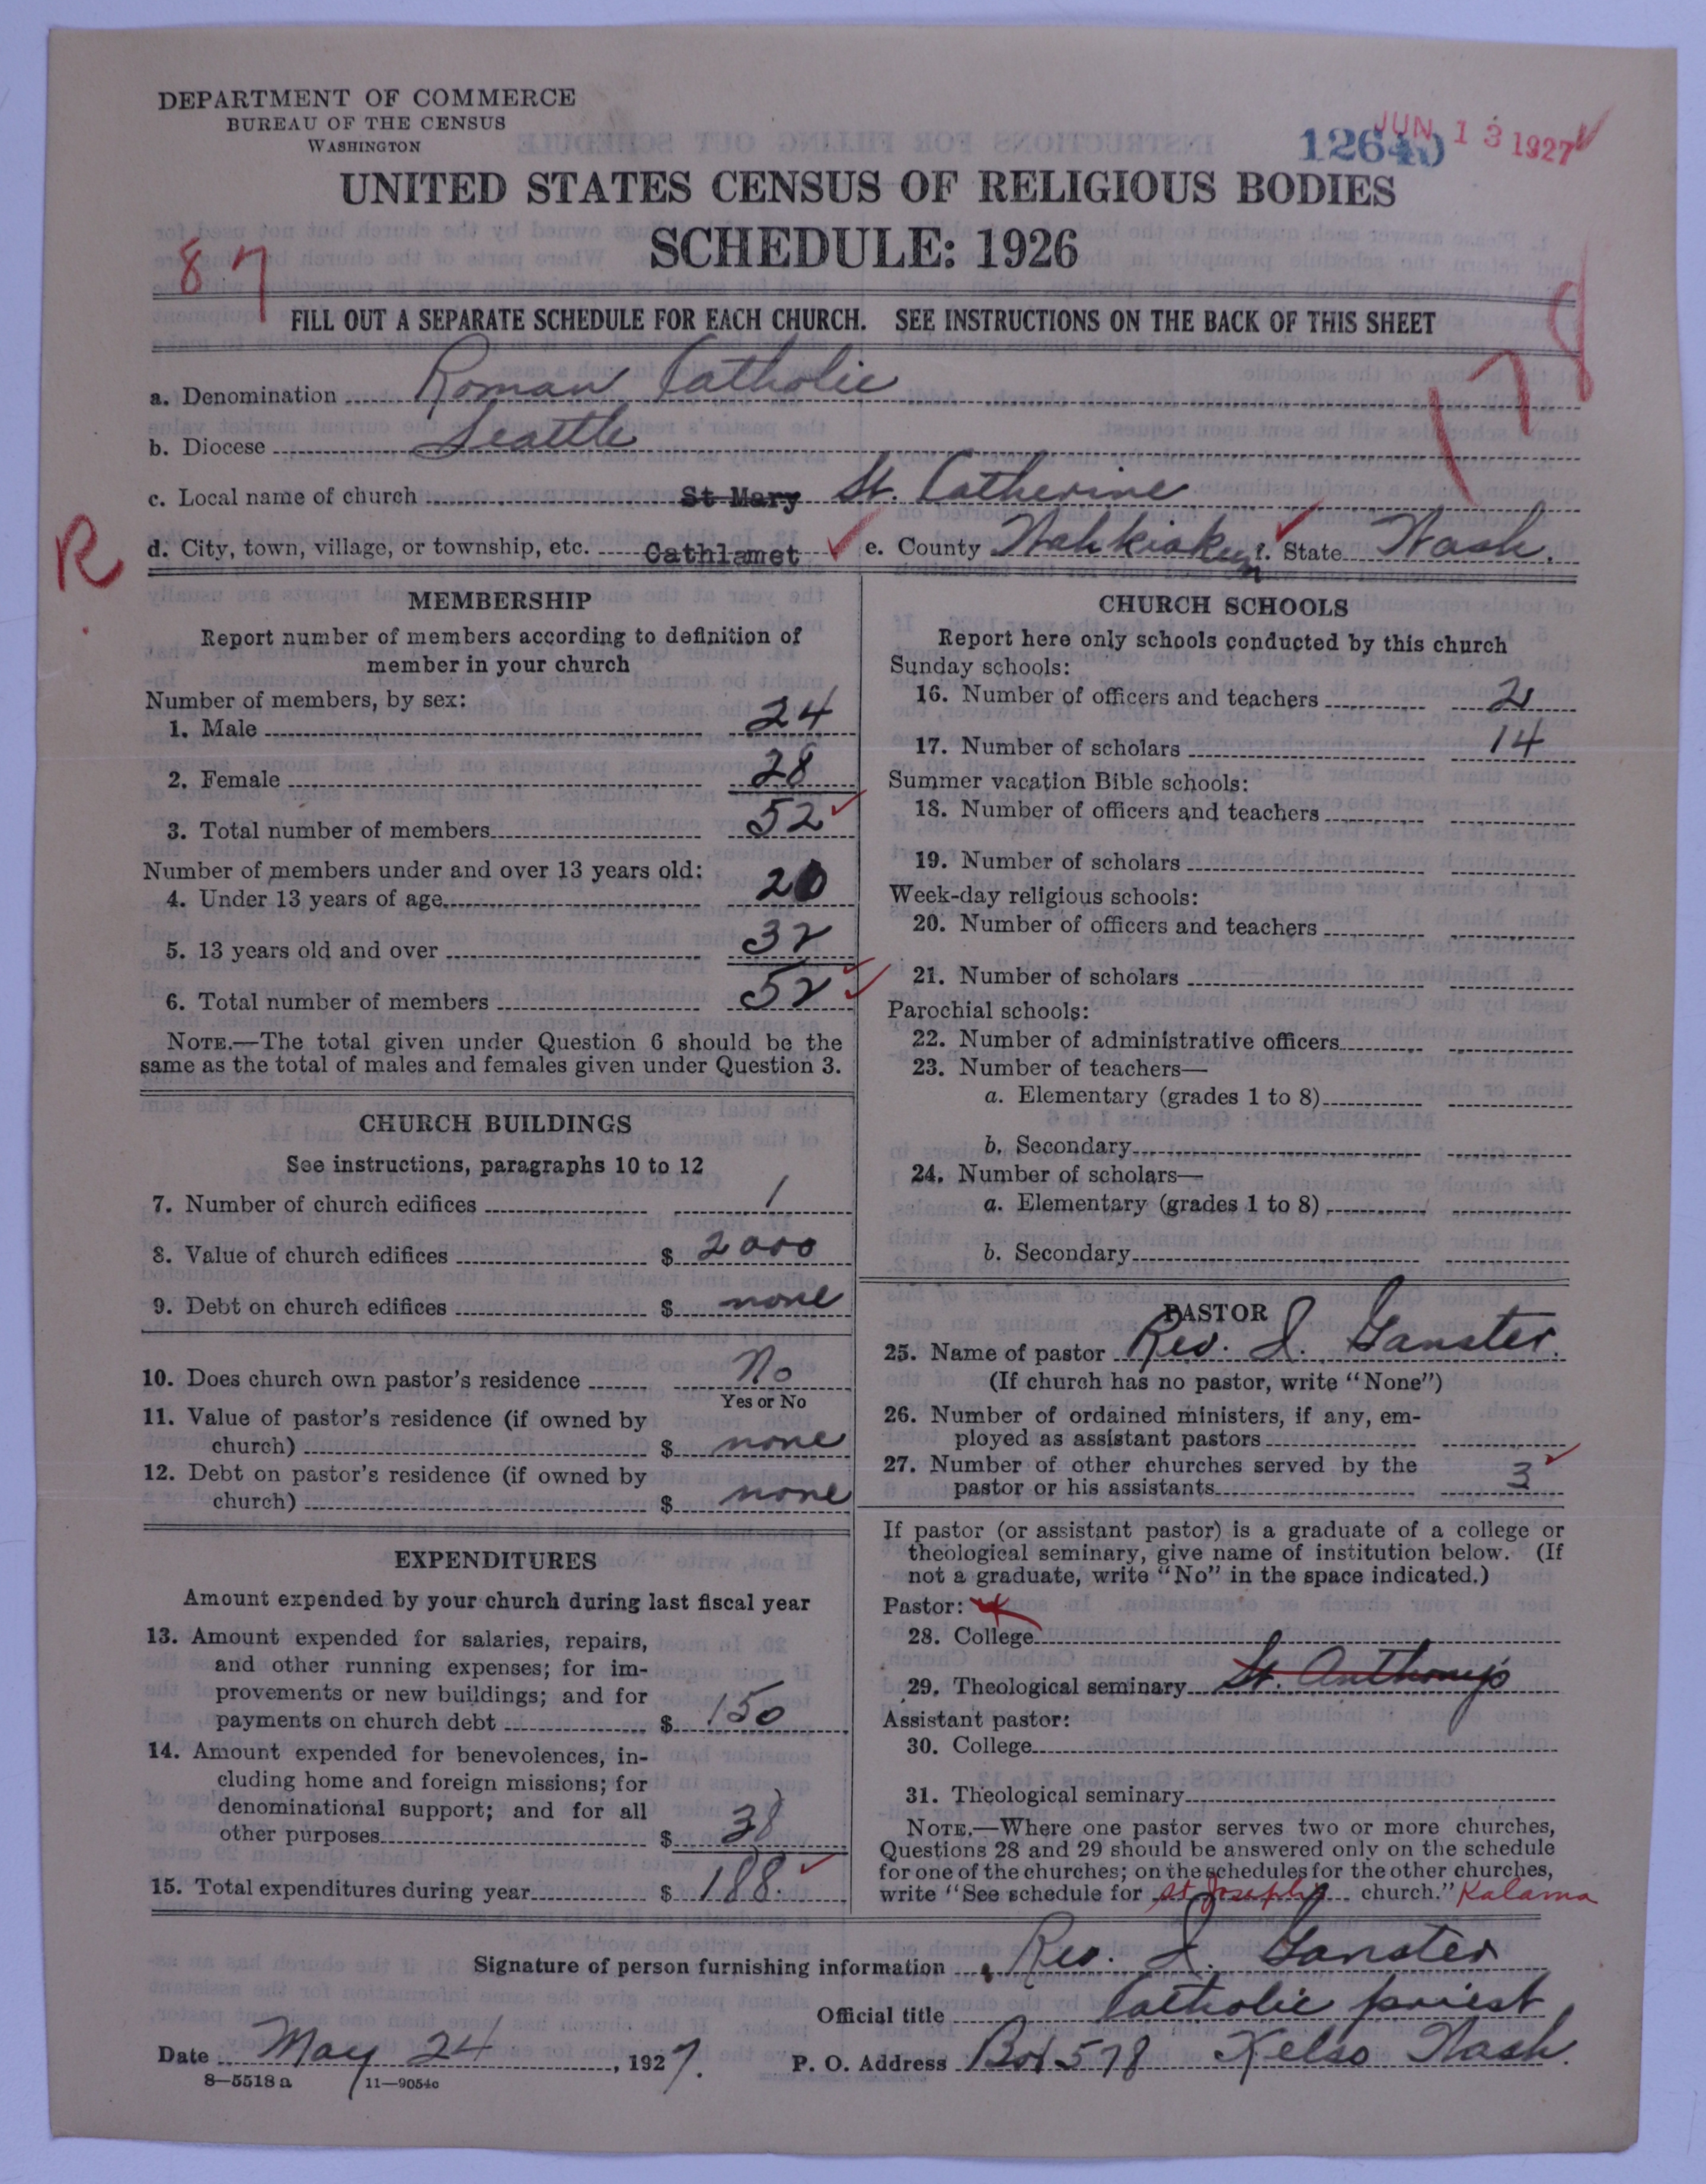 DEPARTMENT OF COMMERCE
BUREAU OF THE CENSUS
WASHINGTON
JUN 13 1927
UNITED STATES CENSUS OF RELIGIOUS BODIES
SCHEDULE: 1926
87
FILL OUT A SEPARATE SCHEDULE FOR EACH CHURCH. SEE INSTRUCTIONS ON THE BACK OF THIS SHEET
a. Denomination Roman Catholic
b. Diocese Seattle
c. Local name of church St Mary St. Catherine
d. City, town, village, or township, etc. Cathlamet e. County Wahkiakum f. State Wash.
R
MEMBERSHIP
Report number of members according to definition of
member in your church
Number of members, by sex:
1. Male 24
2. Female 28
3. Total number of members 52
Number of members under and over 13 years old:
4. Under 13 years of age 20
5. 13 years old and over 32
6. Total number of members 52
NOTE.—The total given under Question 6 should be the
same as the total of males and females given under Question 3.
CHURCH BUILDINGS
See instructions, paragraphs 10 to 12
7. Number of church edifices 1
8. Value of church edifices $ 2000
9. Debt on church edifices $ none
10. Does church own pastor's residence No
Yes or No
11. Value of pastor's residence (if owned by
church) $ none
12. Debt on pastor's residence (if owned by
church) $ none
EXPENDITURES
Amount expended by your church during last fiscal year
13. Amount expended for salaries, repairs,
and other running expenses; for im-
provements or new buildings; and for
payments on church debt $ 150
14. Amount expended for benevolences, in-
cluding home and foreign missions; for
denominational support; and for all
other purposes $ 38
15. Total expenditures during year $ 188.
CHURCH SCHOOLS
Report here only schools conducted by this church
Sunday schools:
16. Number of officers and teachers 2
17. Number of scholars 14
Summer vacation Bible schools:
18. Number of officers and teachers
19. Number of scholars
Week-day religious schools:
20. Number of officers and teachers
21. Number of scholars
Parochial schools:
22. Number of administrative officers
23. Number of teachers—
a. Elementary (grades 1 to 8)
b. Secondary
24. Number of scholars—
a. Elementary (grades 1 to 8)
b. Secondary
PASTOR
25. Name of pastor Rev. J. Ganster.
(If church has no pastor, write "None")
26. Number of ordained ministers, if any, em-
ployed as assistant pastors
27. Number of other churches served by the
pastor or his assistants 3
If pastor (or assistant pastor) is a graduate of a college or
theological seminary, give name of institution below. (If
not a graduate, write "No" in the space indicated.)
Pastor:
28. College
29. Theological seminary St. Anthony's
Assistant pastor:
30. College
31. Theological seminary
NOTE.—Where one pastor serves two or more churches,
Questions 28 and 29 should be answered only on the schedule
for one of the churches; on the schedules for the other churches,
write "See schedule for St Joseph's church." Kalama
Signature of person furnishing information Rev. J. Ganster
Official title Catholic priest
Date May 24, 1927. P. O. Address Box 578 Kelso Wash.
8—5518 a 11—9054c